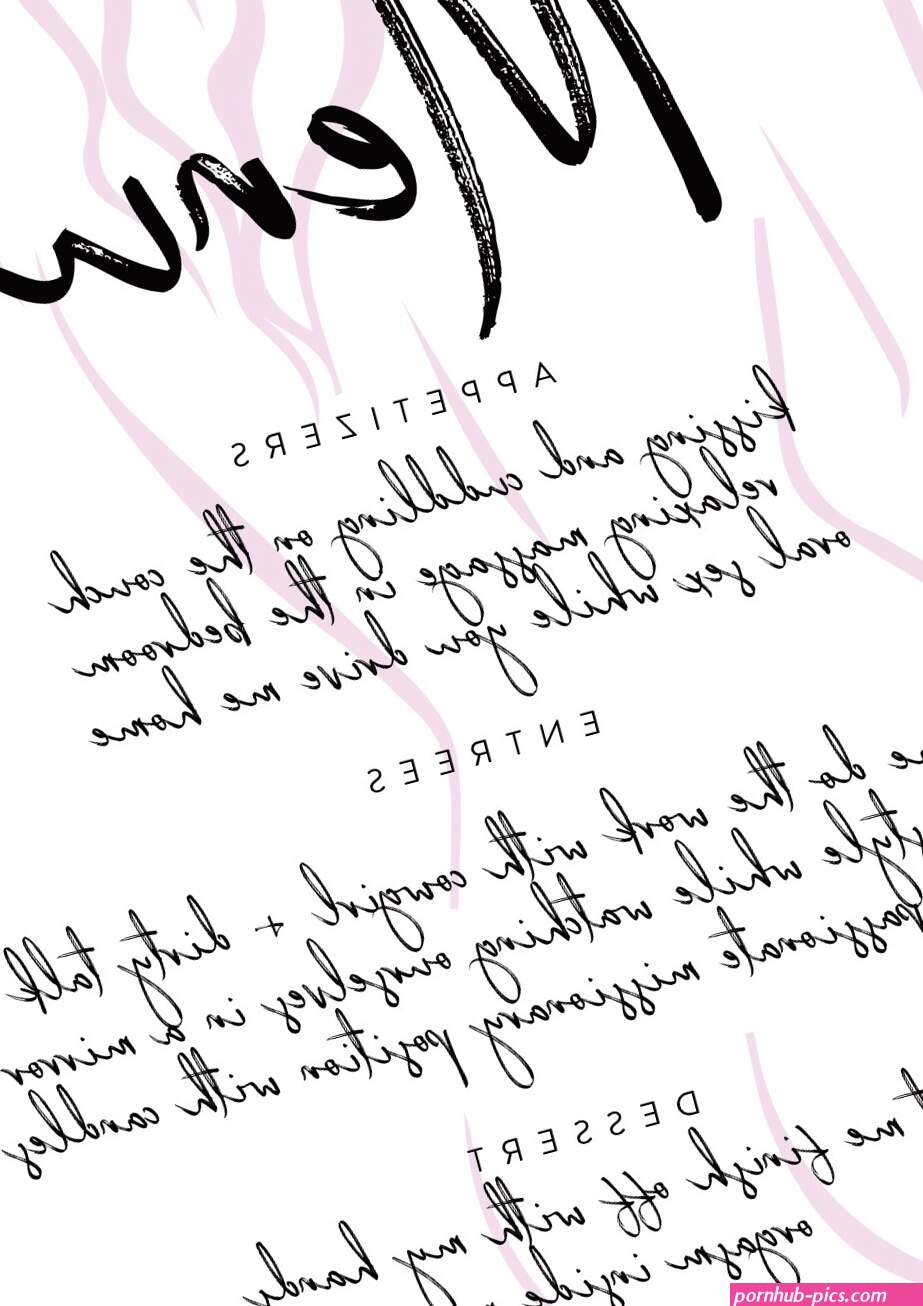 Menu
APPETIZERS
kissing and cuddling on the couch
relaxing massage in the bedroom
oral sex while you drive me home
ENTREES
do the work with cowgirl + dirty talk
while watching ourselves in a mirror
passionate missionary position with candles
DESSERT
me finish off with my hands
orgasm inside
pornhub-pics.com